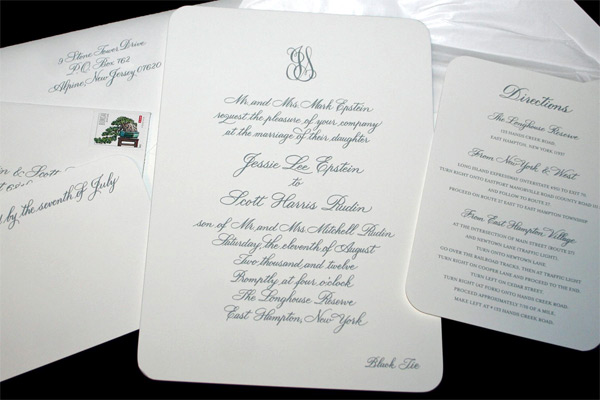 9 Stone Tower Drive
P.O. Box 762
Alpine, New Jersey 07620
& Scott
by the seventh of July
JS
Mr. and Mrs. Mark Epstein
request the pleasure of your company
at the marriage of their daughter
Jessie Lee Epstein
to
Scott Harris Rudin
son of Mr. and Mrs. Mitchell Rudin
Saturday, the eleventh of August
Two thousand and twelve
Promptly at four o'clock
The Longhouse Reserve
East Hampton, New York
Black Tie
Directions
The Longhouse Reserve
133 HANDS CREEK ROAD
EAST HAMPTON, NEW YORK 11937
From New York & West
LONG ISLAND EXPRESSWAY (INTERSTATE 495) TO EXIT 70
TURN RIGHT ONTO EASTPORT MANORVILLE ROAD (COUNTY ROAD 111)
AND DOWN TO ROUTE 27.
PROCEED ON ROUTE 27 EAST TO EAST HAMPTON TOWNSHIP
From East Hampton Village
AT THE INTERSECTION OF MAIN STREET (ROUTE 27)
AND NEWTOWN LANE (TRAFFIC LIGHT)
TURN ONTO NEWTOWN LANE.
GO OVER THE RAILROAD TRACKS, THEN AT TRAFFIC LIGHT
TURN RIGHT ON COOPER LANE AND PROCEED TO THE END.
TURN LEFT ON CEDAR STREET.
TURN RIGHT (AT YORK) ONTO HANDS CREEK ROAD.
PROCEED APPROXIMATELY 7/10 OF A MILE.
MAKE LEFT AT 133 HANDS CREEK ROAD.